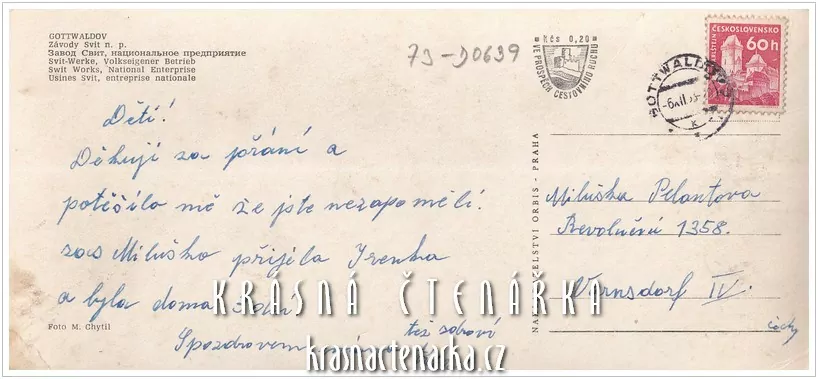 GOTTWALDOV
Závody Svit n. p.
Завод Свит, национальное предприятие
Svit-Werke, Volkseigener Betrieb
Swit Works, National Enterprise
Usines Svit, entreprise nationale
73-D0639
Kčs 0,20
VE PROSPĚCH CESTOVNÍHO RUCHU
GOTTWALDOV
ČESKOSLOVENSKO
60h
Děti!
Děkuji za přání a
potěšilo mě že jste nezapoměli.
zas Miluško přijela Irenka
a byla doma
Spozdravem
též zdraví
Foto M. Chytil
ORBIS - PRAHA
Miluška Pelantova
Revoluční 1358.
Varnsdorf IV.
Čechy
KRÁSNÁ ČTENÁŘKA
krasnactenarka.cz